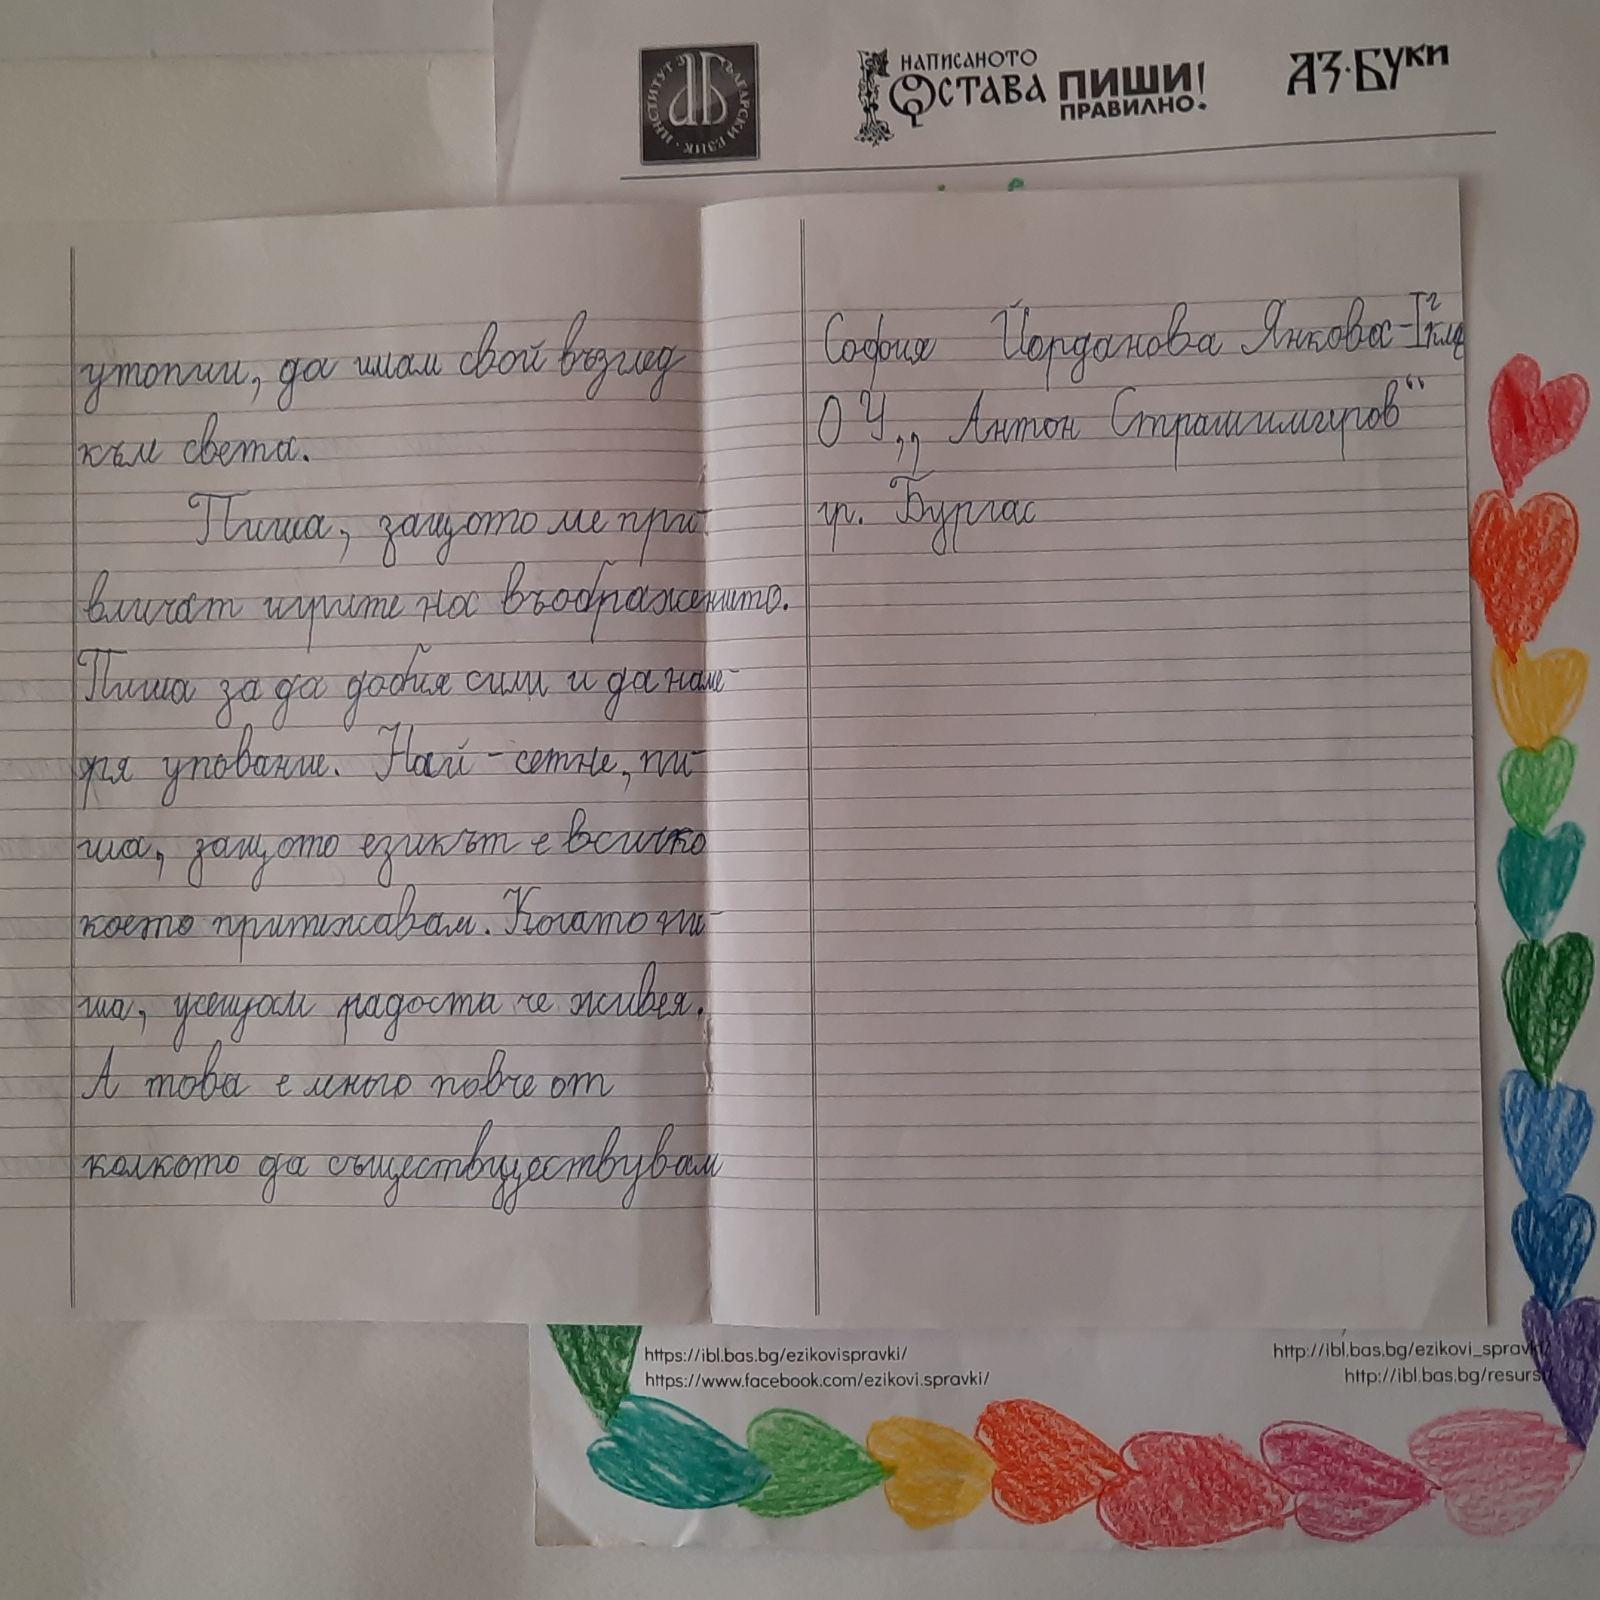 ИНСТИТУТ ЗА БЪЛГАРСКИ ЕЗИК
НАПИСАНОТО
ОСТАВА
ПИШИ!
ПРАВИЛНО.
АЗ·БУКИ
утопии, да имам свой възглед
към света.
Пиша, защото ме при-
вличат игрите на въображението.
Пиша за да добия сили и да наме-
ря упование. Най-сетне, пи-
ша, защото езикът е всичко
което притежавам. Когато пи-
ша, усещам радостта че живея.
А това е много повче от
колкото да съществуществувам
София Йорданова Янкова-Iг клас
ОУ,, Антон Страшимиров“
гр. Бургас
https://ibl.bas.bg/ezikovispravki/
https://www.facebook.com/ezikovi.spravki/
http://ibl.bas.bg/ezikovi_spravki/
http://ibl.bas.bg/resursi/